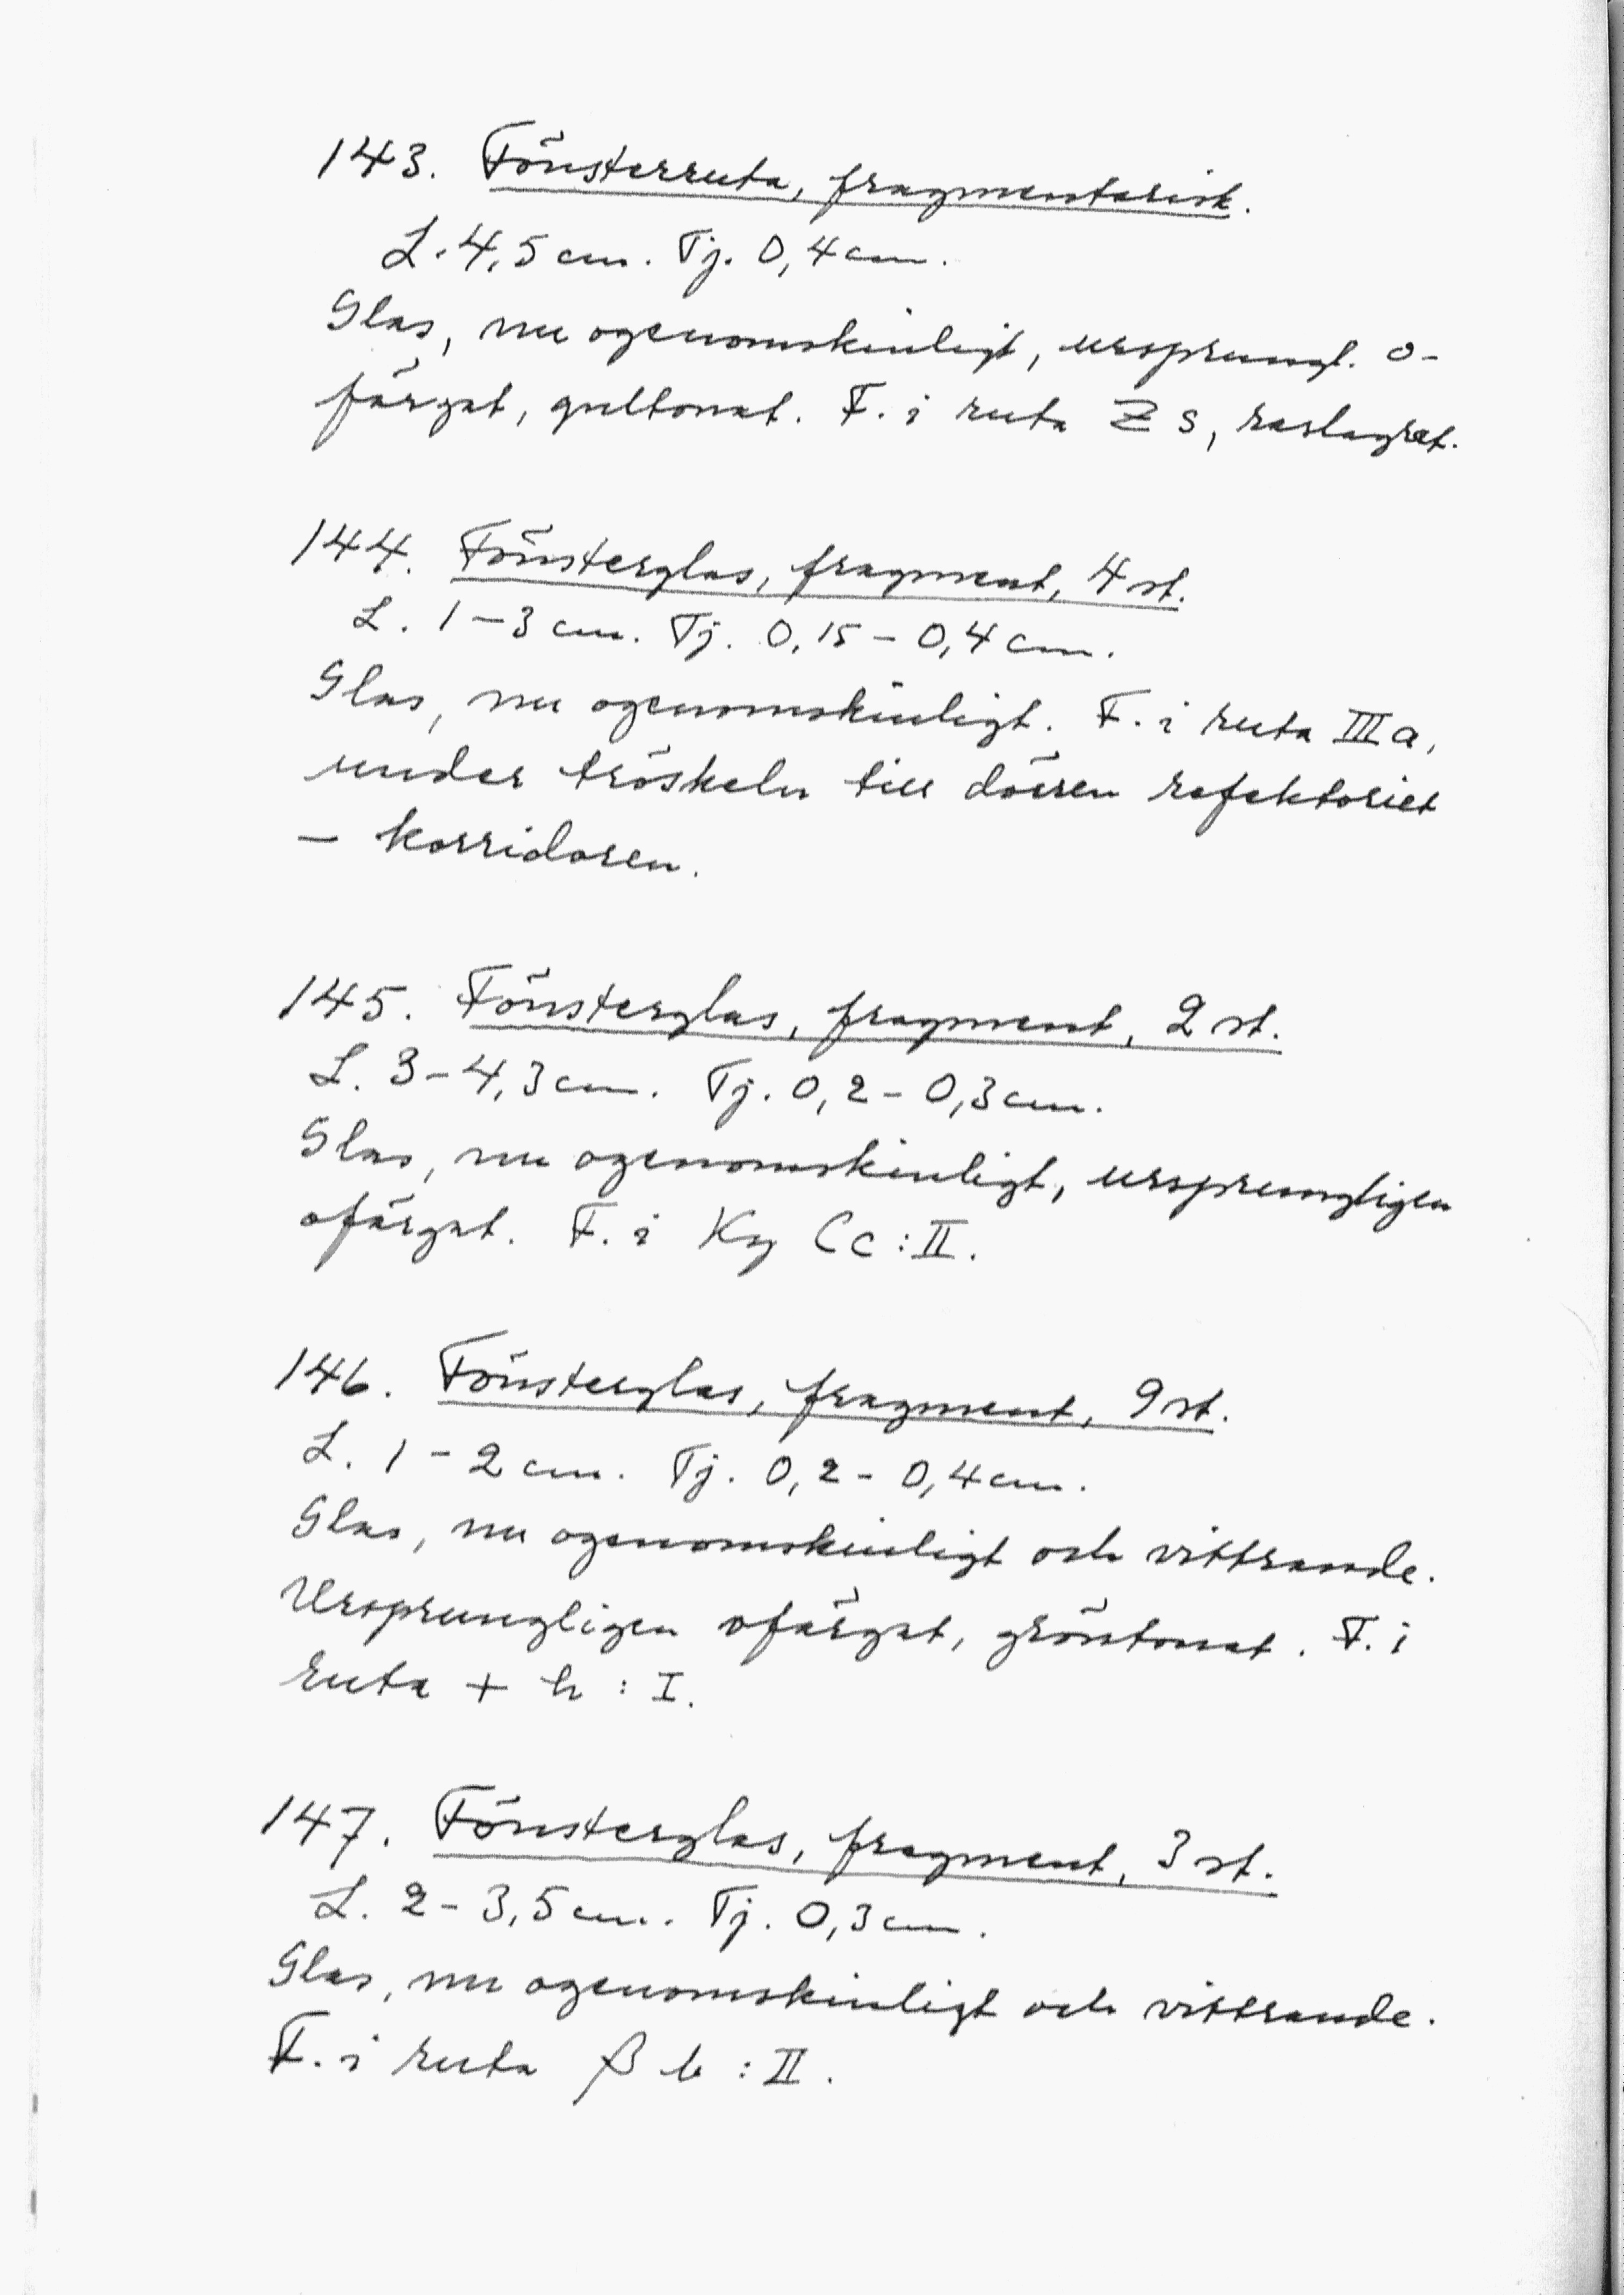 143. Fönsterruta, fragmentarisk.
L. 4,5 cm. Tj. 0,4 cm.
Glas, nu ogenomskinligt, ursprungl. o-
färgat, gultonat. F. i ruta Z s, raslagret.
144. Fönsterglas, fragment, 4 st.
L. 1 – 3 cm. Tj. 0,15 – 0,4 cm.
Glas, nu ogenomskinligt. F. i ruta III a,
under tröskeln till dörren refektoriet
– korridoren.
145. Fönsterglas, fragment, 2 st.
L. 3 – 4,3 cm. Tj. 0,2 – 0,3 cm.
Glas, nu ogenomskinligt, ursprungligen
ofärgat. F. i Kg Cc : II.
146. Fönsterglas, fragment, 9 st.
L. 1 – 2 cm. Tj. 0,2 – 0,4 cm.
Glas, nu ogenomskinligt och vittrande.
Ursprungligen ofärgat, gröntonat. F. i
ruta + h : I.
147. Fönsterglas, fragment, 3 st.
L. 2 – 3,5 cm. Tj. 0,3 cm.
Glas, nu ogenomskinligt och vittrande.
F. i ruta β b : II.